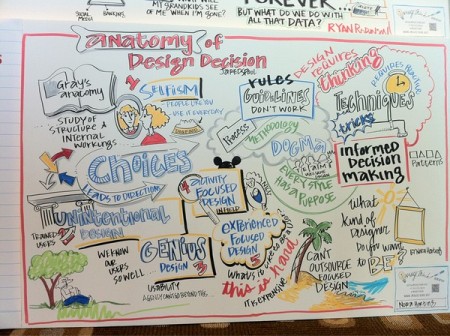 MY GRANDKIDS SEE
OF ME WHEN I'M GONE?
FOREVER...
BUT WHAT DO WE DO WITH
ALL THAT DATA?
SOCIAL
MEDIA
anatomy of
Design Decision
Gray's
anatomy
STUDY OF
STRUCTURE &
INTERNAL
WORKINGS
1
SELFISM
PEOPLE LIKE YOU
USE IT EVERYDAY
RULES
GUIDELINES
DON'T WORK
DESIGN
REQUIRES
thinking
REQUIRES
TECHNIQUES
tricks
PROCESS
METHODOLOGY
DOGMA
EVERY STYLE
HAS A PURPOSE
INFORMED
DECISION
MAKING
PATTERNS
CHOICES
LEADS TO DIRECTION
4
ACTIVITY
FOCUSED
DESIGN
2
UNINTENTIONAL
DESIGN
TRAINED
USERS
WE KNOW
OUR
USERS
SO WELL
GENIUS
DESIGN 3
USABILITY
EXPERIENCED
FOCUSED
DESIGN 5
WHAT IS
this is hard
IT'S EXPENSIVE
CAN'T
OUTSOURCE
FOCUSED
DESIGN
WHAT
KIND OF
DESIGNER
DO YOU WANT
TO BE?